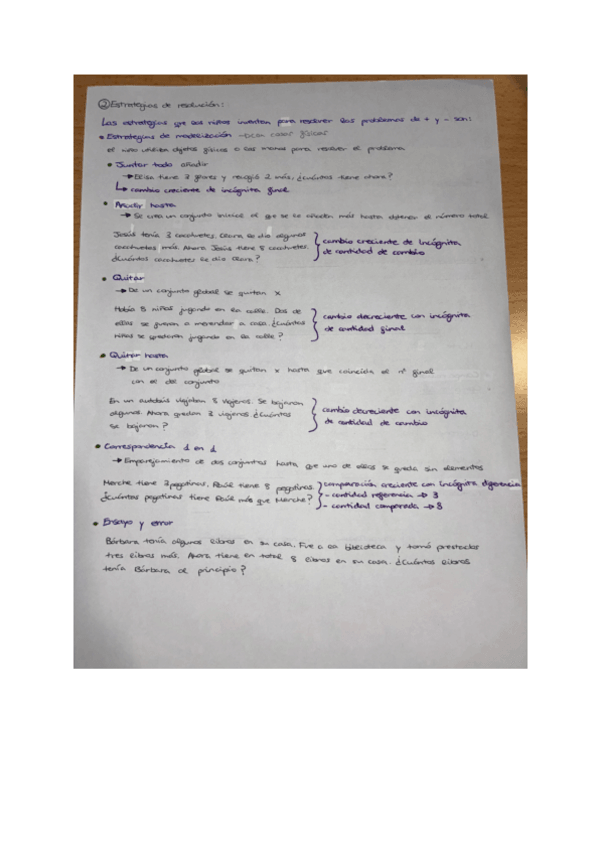 ② Estrategias de resolución:
Las estrategias que los niños inventan para resolver los problemas de + y - son:
• Estrategias de modelización → con cosas físicas
el niño utiliza objetos físicos o las manos para resolver el problema
• Juntar todo añadir
→ Elisa tiene 3 flores y recogió 2 más. ¿Cuántas tiene ahora?
↳ cambio creciente de incógnita final
• Añadir hasta
→ Se crea un conjunto inicial al que se le añaden más hasta obtener el número total
Jesús tenía 3 cacahuetes. Clara le dio algunos
cacahuetes más. Ahora Jesús tiene 8 cacahuetes.
¿Cuántos cacahuetes le dio Clara?
cambio creciente de incógnita
de cantidad de cambio
• Quitar
→ De un conjunto global se quitan x
Había 8 niños jugando en la calle. Dos de
ellos se fueron a merendar a casa. ¿Cuántos
niños se quedaron jugando en la calle?
cambio decreciente con incógnita
de cantidad final
• Quitar hasta
→ De un conjunto global se quitan x hasta que coincida el nº final
con el del conjunto
En un autobús viajaban 8 viajeros. Se bajaron
algunos. Ahora quedan 3 viajeros ¿Cuántos
se bajaron?
cambio decreciente con incógnita
de cantidad de cambio
• Correspondencia 1 en 1
→ Emparejamiento de dos conjuntos hasta que uno de ellos se queda sin elementos
Merche tiene 3 pegatinas. Raúl tiene 8 pegatinas.
¿Cuántas pegatinas tiene Raúl más que Merche?
comparación creciente con incógnita diferencia
- cantidad referencia → 3
- cantidad comparada → 8
• Ensayo y error
Bárbara tenía algunos libros en su casa. Fue a la biblioteca y tomó prestados
tres libros más. Ahora tiene en total 8 libros en su casa. ¿Cuántos libros
tenía Bárbara al principio?